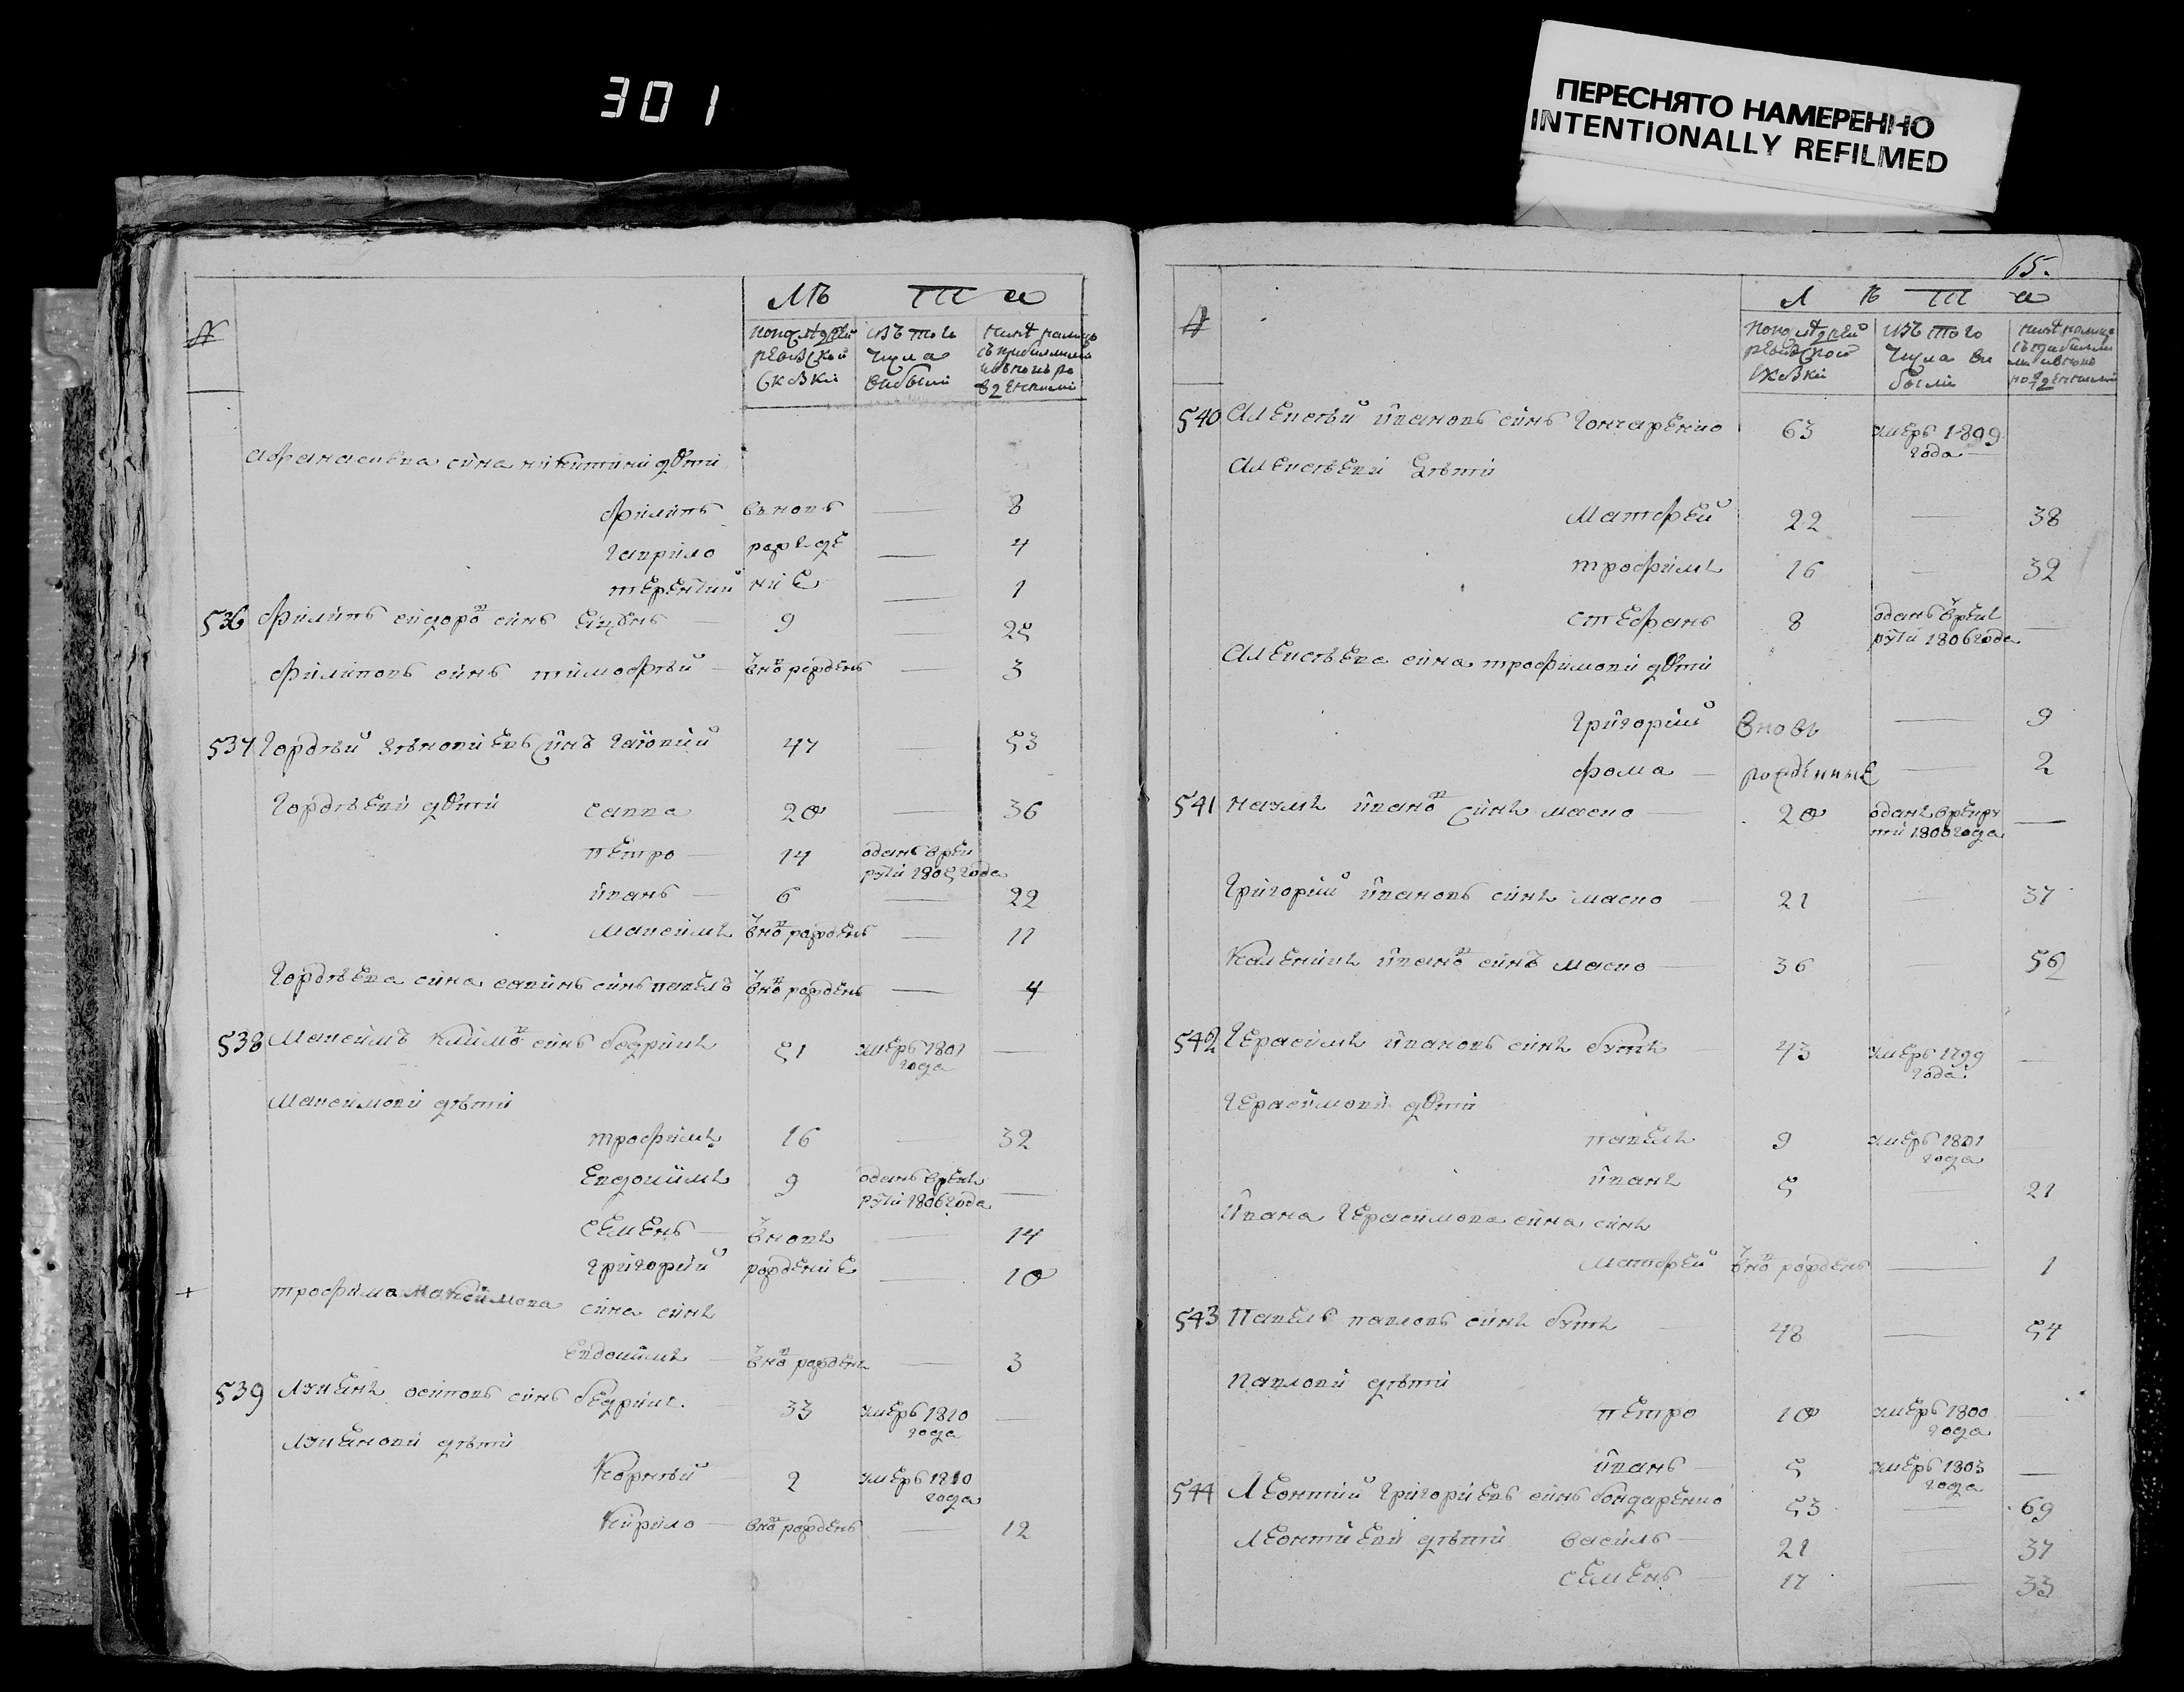 301
ПЕРЕСНЯТО НАМЕРЕННО
INTENTIONALLY REFILMED
№ лѣта
по последней ревизской сказки
изъ того числа выбыли
Афанасиева сина никитини дѣти
филипъ вьновъ — 8
гаврило рожде — 4
терентий ние — 1
536 Филипъ сидоровъ синъ — 9 25
филиповъ синъ тимофѣй — вновъ рожденъ — 3
537 Гордѣй синъ 47 53
Гордѣеви дѣти савва 20 — 36
петро — 14 оданъ врекрути 1805 года
иванъ — 6 — 22
максимъ вновъ рожденъ — 11
Гордѣева сина савинъ синъ павелъ вновъ рожденъ — 4
538 Максимъ климовъ синъ бедрикъ 51 умеръ 1801 года —
Максимови дѣти
трофимъ 16 — 32
Евдокимъ 9 оданъ врекрути 1806 года —
семенъ — вновъ — 14
григорий рождение — 10
+ трофима максимова сина синъ
Евдокимъ — вновъ рожденъ — 3
539 Лукянъ осиповъ синъ бедрикъ — 33 умеръ 1810 года —
Лукянови дѣти
Корнѣй — 2 умеръ 1810 года
Кирило — вновъ рожденъ — 12
65.
№ лѣта
по последней ревизской сказки
изъ того числа выбыли
540 Алексѣй ивановъ синъ Гончаренко 63 умеръ 1809 года —
Алексѣеви дѣти
Матфей 22 — 38
трофимъ 16 — 32
стефанъ 8 оданъ врекрути 1806 года —
Алексѣева сина трофимови дѣти
григорий вновъ — 9
фома — рожденние — 2
541 наумъ ивановъ синъ маско — 20 оданъ врекрути 1806 года —
Григорий ивановъ синъ маско — 21 — 37
Каленикъ ивановъ синъ маско — 36 — 52
542 Герасимъ ивановъ синъ бутъ — 43 умеръ 1799 года —
Герасимови дѣти
павелъ 9 умеръ 1801 года
иванъ 5 — 21
ивана Герасимова сина синъ
матфей вновъ рожденъ — 1
543 Павелъ павловъ синъ бутъ — 48 — 54
Павлови дѣти
петро 10 умеръ 1800 года —
иванъ — 5 умеръ 1803 года —
544 Леонтий григориевъ синъ бондаренко 53 — 69
Леонтиеви дѣти василь — 21 — 37
семенъ — 17 — 33